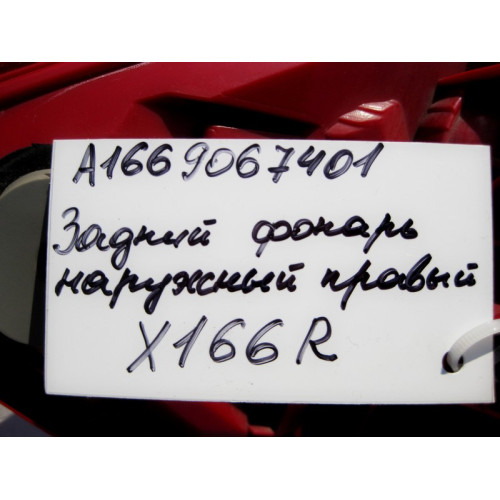 A1669067401
Задний фонарь
наружный правый
X166R